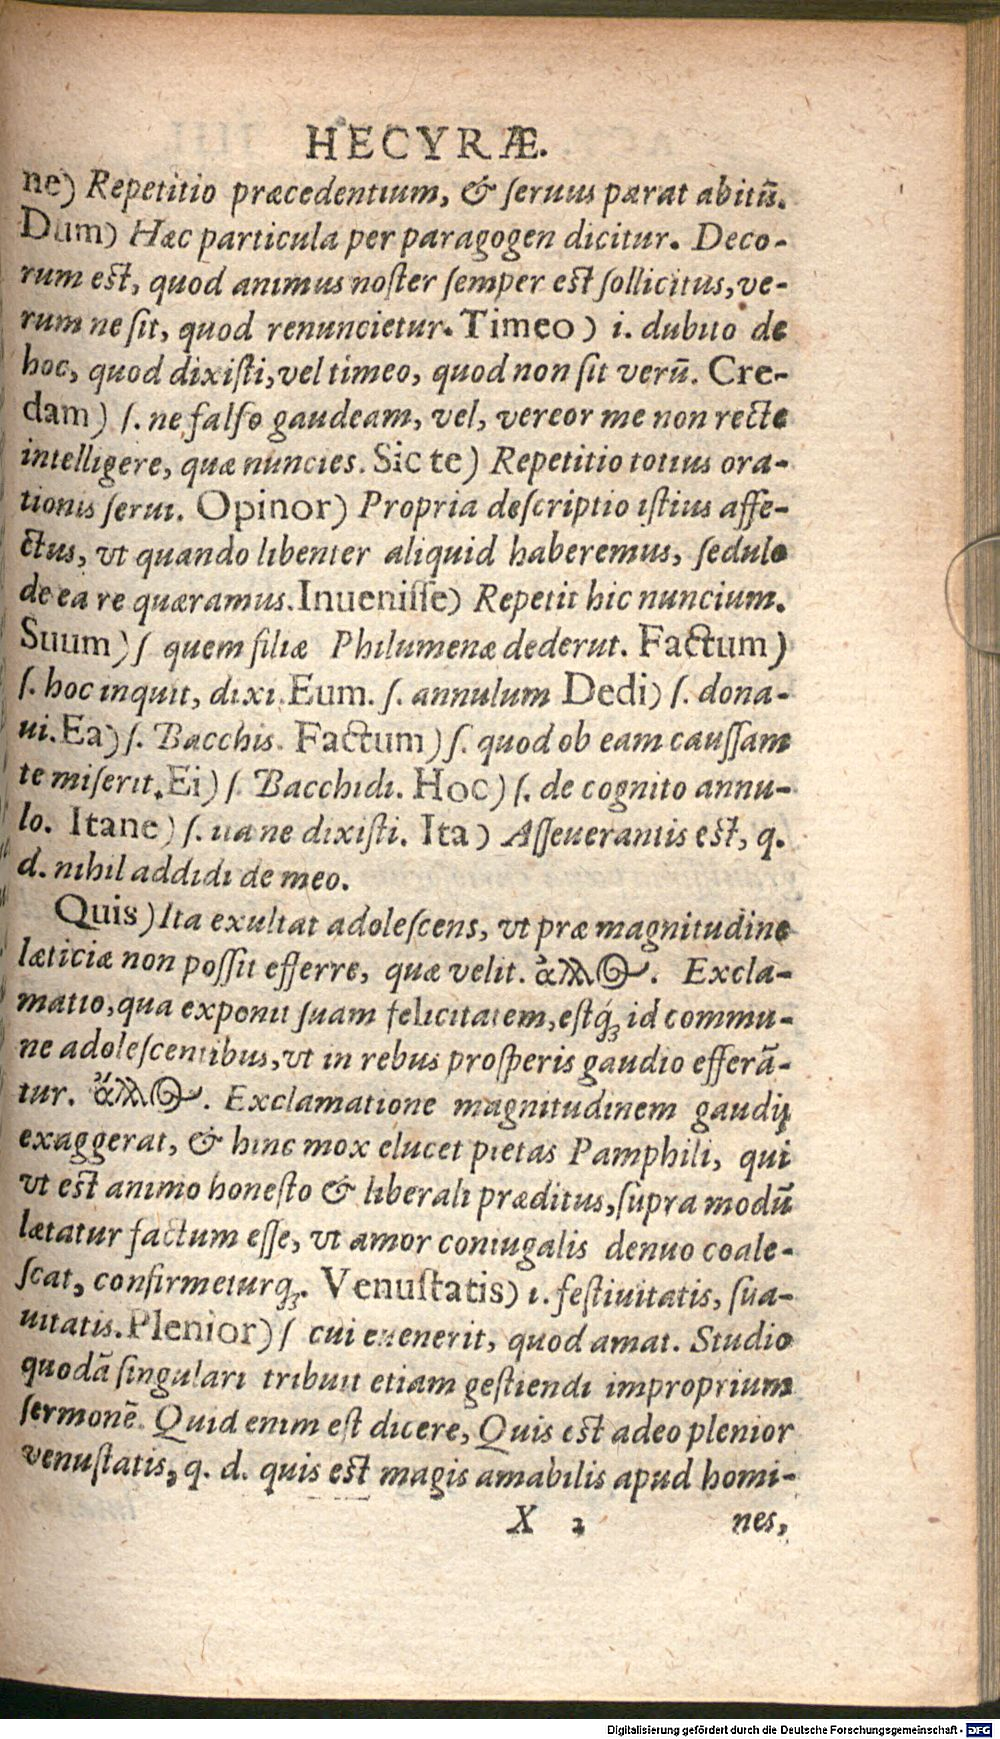 HECYRÆ.
ne) Repetitio præcedentium, & ſeruus parat abitū.
Dum) Hæc particula per paragogen dicitur. Deco-
rum est, quod animus noſter ſemper est ſollicitus, ve-
rum ne ſit, quod renuncietur. Timeo) i. dubito de
hoc, quod dixiſti, vel timeo, quod non ſit verū. Cre-
dam) ſ. ne falſo gaudeam, vel, vereor me non recte
intelligere, quæ nuncies. Sic te) Repetitio totius ora-
tionis ſerui. Opinor) Propria deſcriptio iſtius affe-
ctus, vt quando libenter aliquid haberemus, ſedulo
de ea re quæramus. Inueniſſe) Repetit hic nuncium.
Suum) ſ quem filiæ Philumenæ dederut. Factum)
ſ. hoc inquit, dixi. Eum. ſ. annulum Dedi) ſ. dona-
ui. Ea) ſ. Bacchis. Factum) ſ. quod ob eam cauſſam
te miſerit. Ei) ſ Bacchidi. Hoc) ſ. de cognito annu-
lo. Itane) ſ. itane dixiſti. Ita) Aſſeuerantis est, q.
d. nihil addidi de meo.
Quis) Ita exultat adoleſcens, vt præ magnitudine
læticiæ non poſſit efferre, quæ velit. ἄλλως. Excla-
matio, qua exponit ſuam felicitatem, estq́ꝫ id commu-
ne adoleſcentibus, vt in rebus proſperis gaudio efferā-
tur. ἄλλως. Exclamatione magnitudinem gaudij
exaggerat, & hinc mox elucet pietas Pamphili, qui
vt est animo honeſto & liberali præditus, ſupra modū
lætatur factum eſſe, vt amor coniugalis denuo coale-
ſcat, confirmeturqꝫ. Venuſtatis) i. feſtiuitatis, ſua-
uitatis. Plenior) ſ cui euenerit, quod amat. Studio
quodā ſingulari tribuit etiam geſtiendi improprium
ſermonē. Quid enim eſt dicere, Quis est adeo plenior
venuſtatis, q. d. quis est magis amabilis apud homi-
X 2 nes,
Digitalisierung gefördert durch die Deutsche Forschungsgemeinschaft - DFG